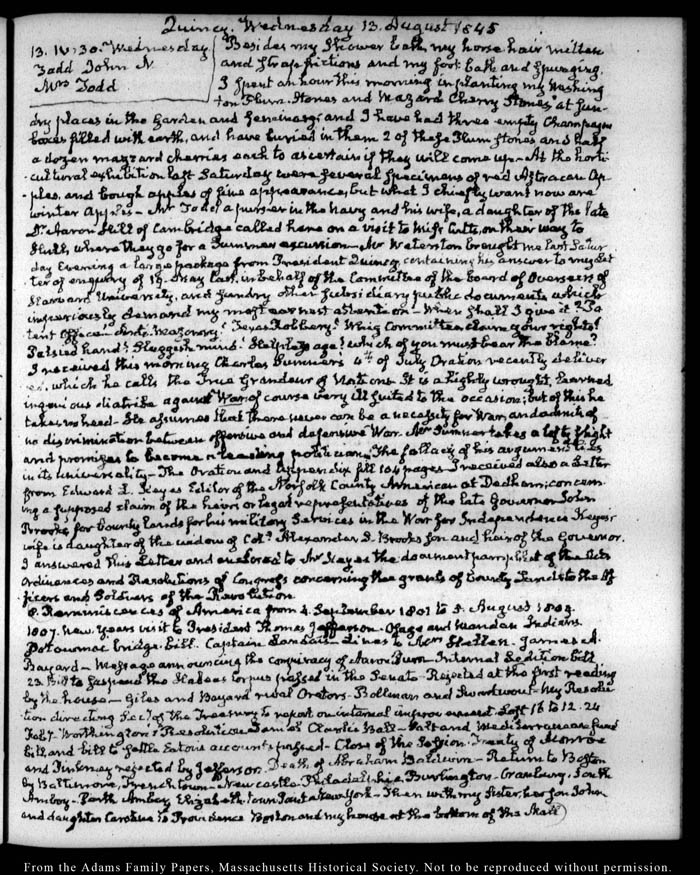 Quincy. Wednesday 13. August 1845
13. IV:30. Wednesday
Todd John N
Mrs Todd
Besides my Shower bath, my horse hair mitten
and strap frictions and my foot bath and spunging.
I spent an hour this morning in planting my Washing
ton Plum-Stones and Mazard Cherry Stones at sun-
dry places in the Garden and Seminary and I have had three empty Champagne
boxes filled with earth, and have buried in them 2 of these Plum stones and half
a dozen mazzard cherries each to ascertain if they will come up— At the horti
cultural exhibition last Saturday were several specimens of red Astracan Ap-
ples, and bough apples of fine appearance, but what I chiefly want now are
winter Apples— Mr Todd a purser in the navy and his wife, a daughter of the late
Dr Aaron Hill of Cambridge called here on a visit to Miss Cutts, on their way to
Hull, where they go for a Summer excursion— Mr Waterston brought me last Satur
day Evening a large package from President Quincy, containing his answer to my Let
ter of enquiry of 19. May last, in behalf of the Committee of the board of Overseers of
Harvard University, and sundry other subsidiary public documents which
imperiously demand my most earnest attention— When shall I give it? Pa
tent Office! Anti-Masonry! Texas Robbery! Whig Committee claim your rights!
Palsied hand! Sluggish mind! Helpless age! which of you must bear the blame?
I received this morning Charles Sumner's 4th of July Oration recently deliver
ed, which he calls the True Grandeur of Nations. It is a highly wrought, learned
ingenious diatribe against War; of course very ill suited to the occasion; but of this he
takes no heed— He assumes that there never can be a necessity for War, and admits of
no discrimination between offensive and defensive War. Mr Sumner takes a lofty flight
and promises to become a leading politician. The fallacy of his argument lies
in its universality— The Oration and Appendix fill 104 pages. I received also a Letter
from Edward L. Keyes Editor of the Norfolk County American at Dedham; concern-
ing a supposed claim of the heirs or legal representatives of the late Governor John
Brooks, for bounty lands for his military services in the War for Independence. Keyes's
wife is daughter of the widow of Col. Alexander S. Brooks son and heir of the Governor.
I answered this Letter and enclosed to Mr Keyes the document pamphlet of the Acts
Ordinances and Resolutions of Congress concerning the grants of bounty Lands to the Of
ficers and Soldiers of the Revolution.
8. Reminiscences of America from 4. September 1801 to 5. August 1809.
1807. New Years visit to President Thomas Jefferson. Osage and Mandan Indians.
Potowmac bridge bill. Captain Landais— Lines to Mrs Hellen. James A.
Bayard— Message announcing the conspiracy of Aaron Burr— Internal Sedition bill
23. Bill to suspend the Habeas Corpus passed in the Senate— Rejected at the first reading
by the house— Giles and Bayard rival Orators— Bollman and Swartwout— My Resolu
tion directing Secy. of the Treasury to report on internal improvement. Lost 16 to 12. 24
Feby. Worthington's Resolution— James Charlie Ball— Salt and Mediterranean fund
bill, and bill to settle Eatons accounts passed— Close of the Session. Treaty of Monroe
and Pinkney rejected by Jefferson. Death of Abraham Baldwin— Return to Boston
by Baltimore, Frenchtown— New castle— Philadelphia Burlington— Cranbury, South
Amboy— Perth Amboy Elizabeth town Point New York— Then with my Sister, her son John
and daughter Caroline to Providence Boston and my house at the bottom of the Mall
From the Adams Family Papers, Massachusetts Historical Society. Not to be reproduced without permission.